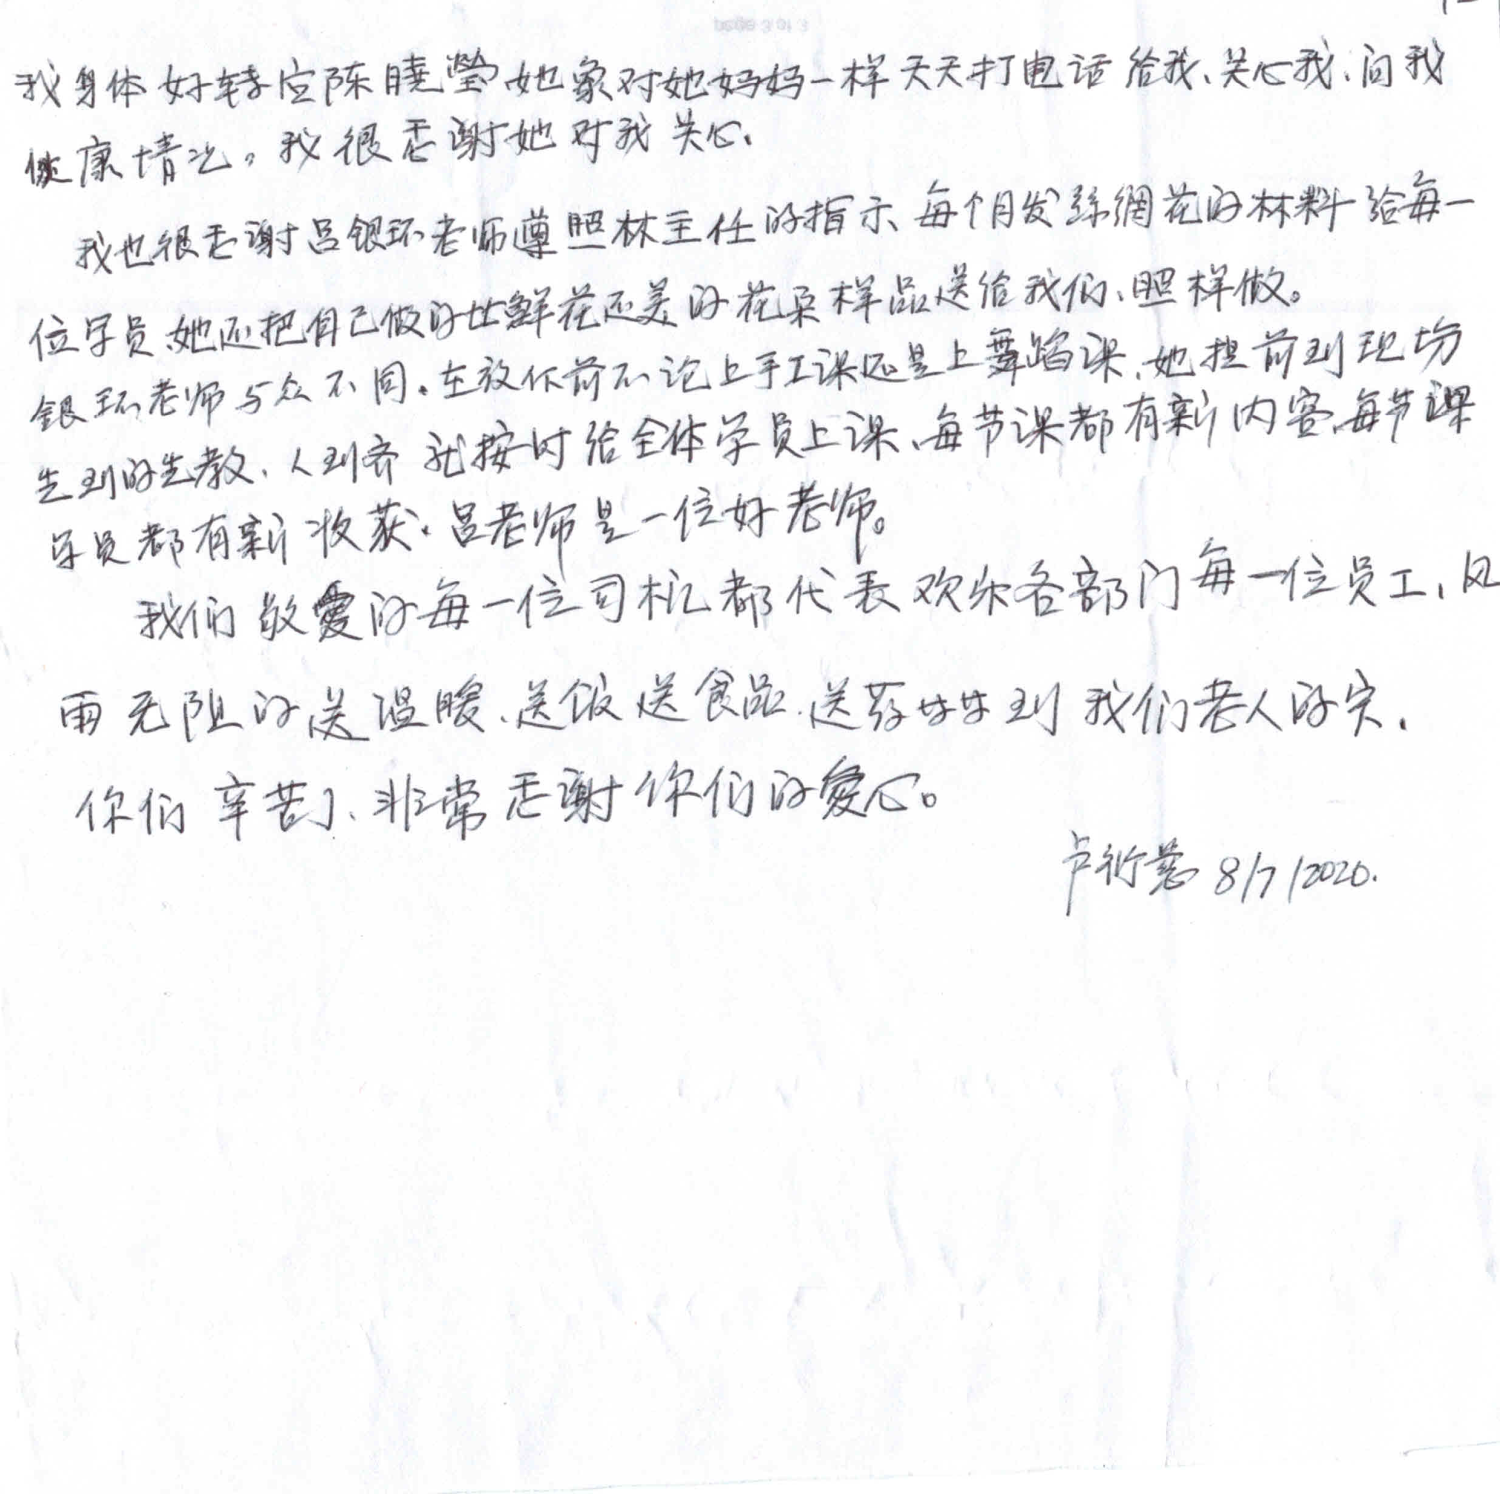 我身体好转定陈曉瑩她象对她妈妈一样天天打电话给我、关心我、问我
健康情况。我很感谢她对我关心.
我也很感谢吕银环老师遵照林主任的指示、每个月发絲網花的材料给每一
位学员、她还把自己做的比鲜花还美的花朵样品送给我们、照样做。
銀环老师与众不同。在放假前不论上手工课还是上舞蹈课、她提前到现场
先到的先教、人到齐就按时给全体学员上课、每节课都有新内容、每节课
学员都有新收获. 吕老师是一位好老师。
我们敬愛的每一位司机都代表欢乐各部门每一位员工、风
雨无阻的送温暖、送饭送食品、送药 到我们老人的家.
你们辛苦了、非常感谢你们的愛心。
卢衍慈 8/7/2020.